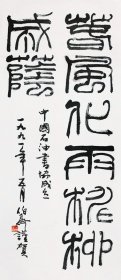 春風化雨楊柳
成蔭
中國石油書協成立
一九九年五月謹賀